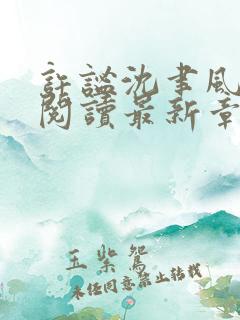 許謐沈聿風
閱讀最新章
玉紫鴛
未經同意禁止轉載